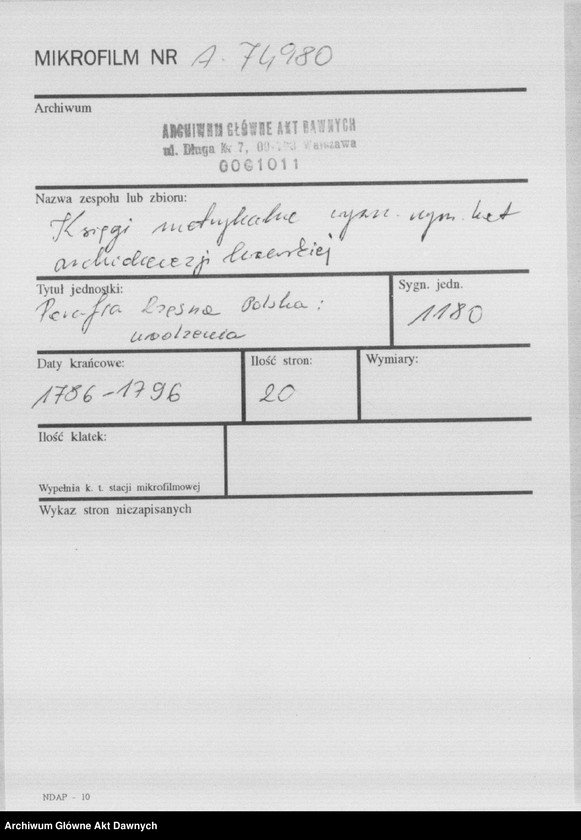 MIKROFILM NR A. 74980
Archiwum
ARCHIWUM GŁÓWNE AKT DAWNYCH
ul. Długa № 7, 00- Warszawa
0001011
Nazwa zespołu lub zbioru:
Księgi metrykalne wyzn. rzym. kat
archidiecezji lwowskiej
Tytuł jednostki:
Parafia Rzęsna Polska:
urodzenia
Sygn. jedn.
1180
Daty krańcowe:
1786-1796
Ilość stron:
20
Wymiary:
Ilość klatek:
Wypełnia k. t. stacji mikrofilmowej
Wykaz stron niezapisanych
NDAP - 10
Archiwum Główne Akt Dawnych